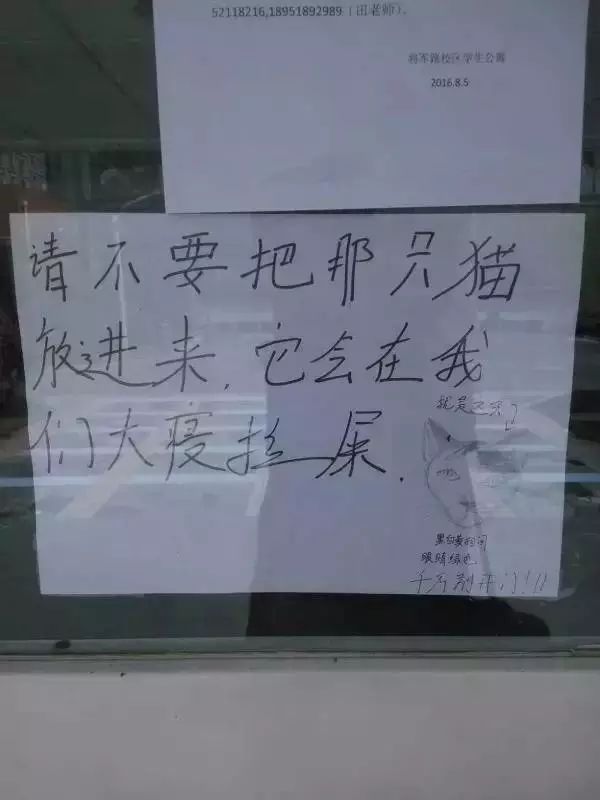 52118216,18951892989（田老师）。
将军路校区学生公寓
2016.8.5
请不要把那只猫
放进来，它会在我
们大寝拉屎.
就是这只
黑白黄相间
眼睛绿色
千万别开门!!!